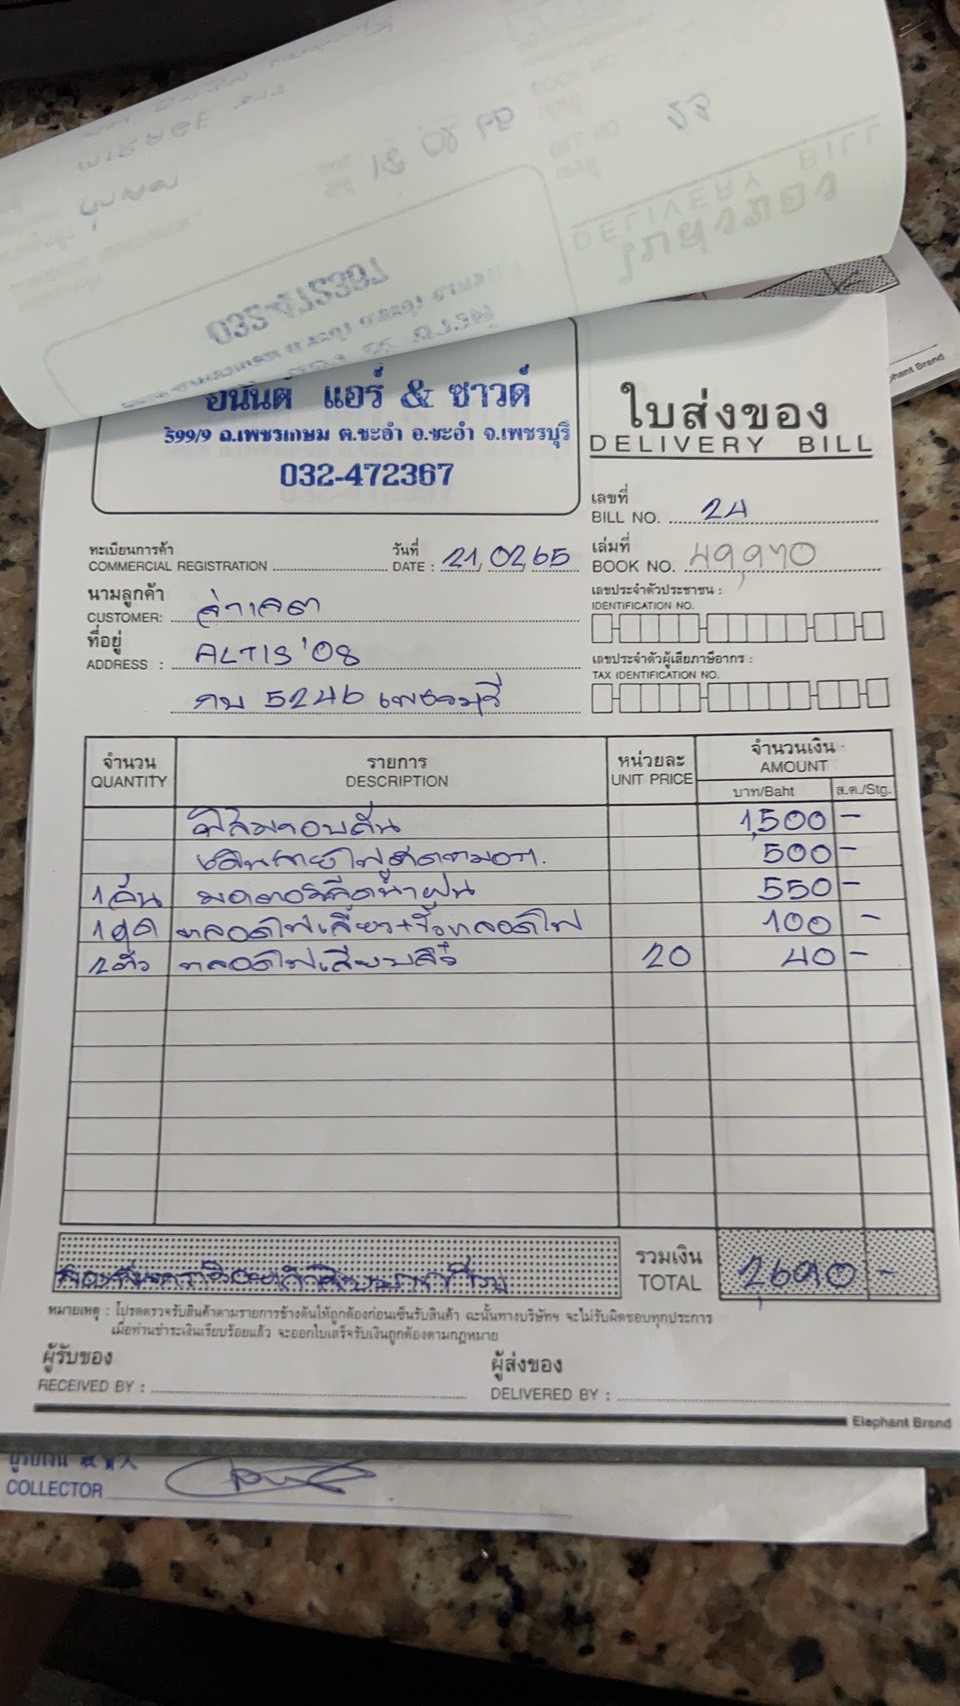 อนันต์ แอร์ & ซาวด์
599/9 ถ.เพชรเกษม ต.ชะอำ อ.ชะอำ จ.เพชรบุรี
032-472367
ใบส่งของ
DELIVERY BILL
เลขที่
BILL NO. 24
ทะเบียนการค้า
COMMERCIAL REGISTRATION
วันที่
DATE : 21,02,65
เล่มที่
BOOK NO. 49,970
นามลูกค้า
CUSTOMER: จ่าเจต
ที่อยู่
ADDRESS : ALTIS '08
กบ 5246 เพชรบุรี
เลขประจำตัวประชาชน :
IDENTIFICATION NO.
เลขประจำตัวผู้เสียภาษีอากร :
TAX IDENTIFICATION NO.
จำนวน รายการ หน่วยละ จำนวนเงิน
QUANTITY DESCRIPTION UNIT PRICE AMOUNT
บาท/Baht ส.ต./Stg.
ฟิล์มรอบคัน 1,500 -
เดินสายไฟ 500 -
1 อัน มอเตอร์ฉีดน้ำฝน 550 -
1 ชุด หลอดไฟเลี้ยว+ขั้วหลอดไฟ 100 -
2 ตัว หลอดไฟเสียบ 20 40 -
รวมเงิน
TOTAL 2,690 -
หมายเหตุ : โปรดตรวจรับสินค้าตามรายการข้างต้นให้ถูกต้องก่อนเซ็นรับสินค้า ฉะนั้นทางบริษัทฯ จะไม่รับผิดชอบทุกประการ
เมื่อท่านชำระเงินเรียบร้อยแล้ว จะออกใบเสร็จรับเงินถูกต้องตามกฎหมาย
ผู้รับของ
RECEIVED BY :
ผู้ส่งของ
DELIVERED BY :
Elephant Brand
ผู้รับเงิน
COLLECTOR